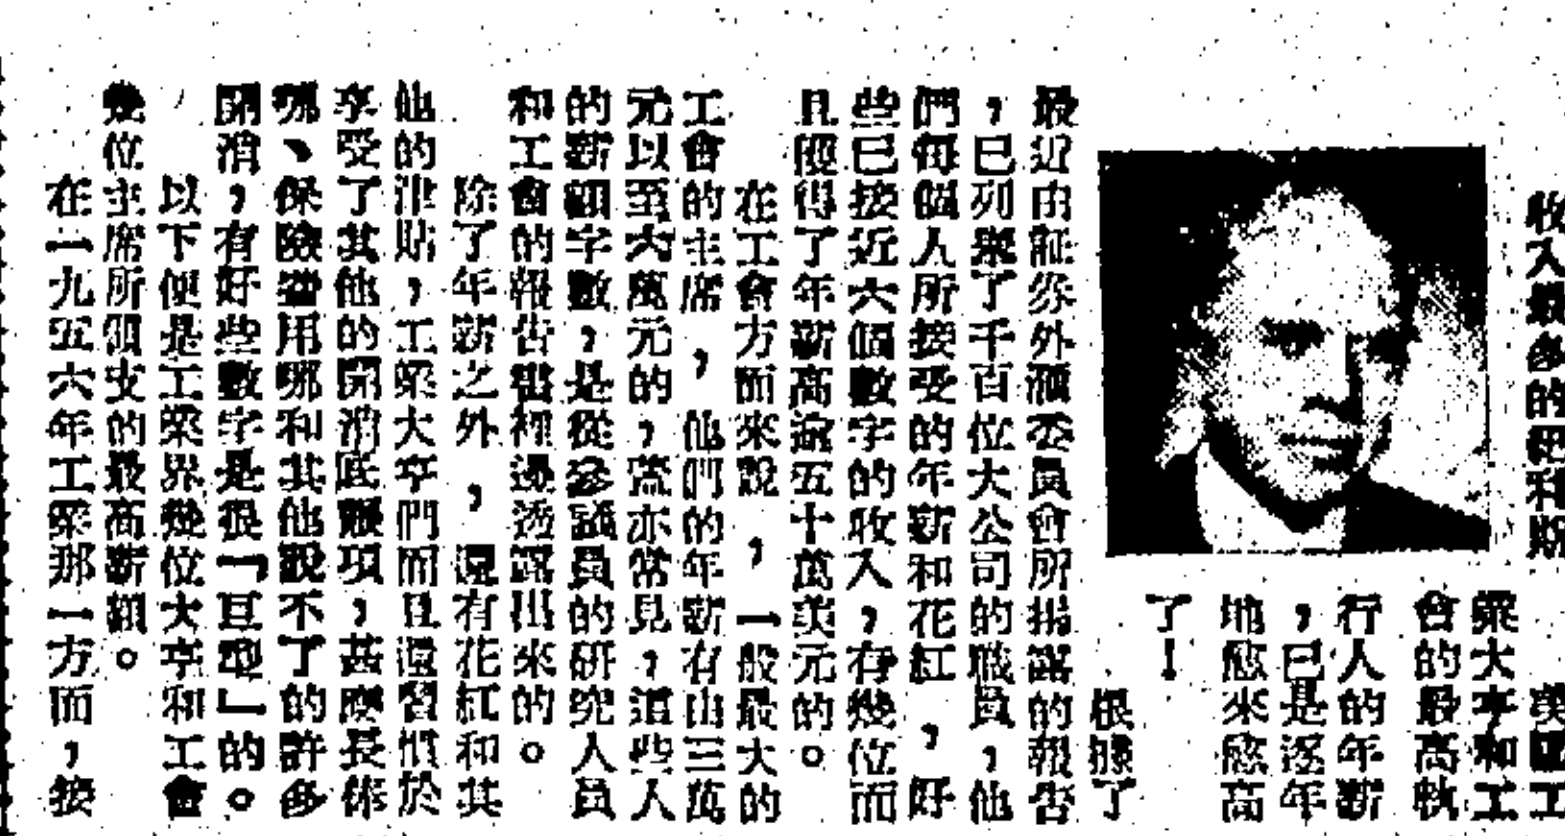 收入最多的
美國工
業大亨和工
會的最高執
行人的年薪
，已是逐年
地愈來愈高
了！
根據了
最近由証券外滙委員會所揭露的報告
，已列舉了千百位大公司的職員，他
們每個人所接受的年薪和花紅，好
些已接近六個數字的收入，有幾位而
且獲得了年薪高逾五十萬美元的。
在工會方面來說，一般最大的
工會的主席，他們的年薪有由三萬
元以至六萬元的，亦常見，這些人
的薪額字數，是從參議員的研究人員
和工會的報告書裡邊透露出來的。
除了年薪之外，還有花紅和其
他的津貼，工業大亨們而且還習慣於
享受了其他的開消底賬項，甚麼長俸
、保險費用哪和其他說不了的許多
開消，有好些數字是很「巨型」的。
以下便是工業界幾位大亨和工會
幾位主席所領支的最高薪額。
在一九五六年工業那一方面，按